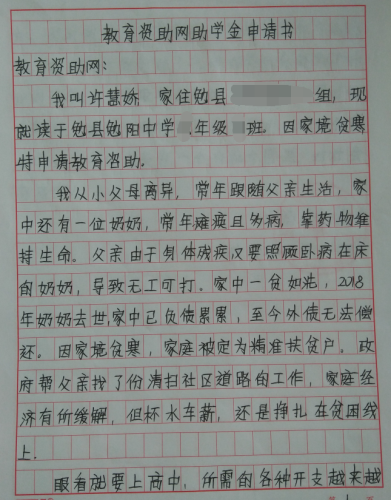 教育资助网助学金申请书
教育资助网：
我叫许慧娇 家住勉县 组，现
就读于勉县勉阳中学 年级 班。因家境贫寒
特申请教育资助。
我从小父母离异，常年跟随父亲生活，家
中还有一位奶奶，常年瘫痪且多病，靠药物维
持生命。父亲由于身体残疾又要照顾卧病在床
的奶奶，导致无工可打。家中一贫如洗，2018
年奶奶去世，家中已负债累累，至今外债无法偿
还。因家境贫寒，家庭被定为精准扶贫户。政
府帮父亲找了份清扫社区道路的工作，家庭经
济有所缓解，但杯水车薪，还是挣扎在贫困线
上．
眼看就要上高中，所需的各种开支越来越